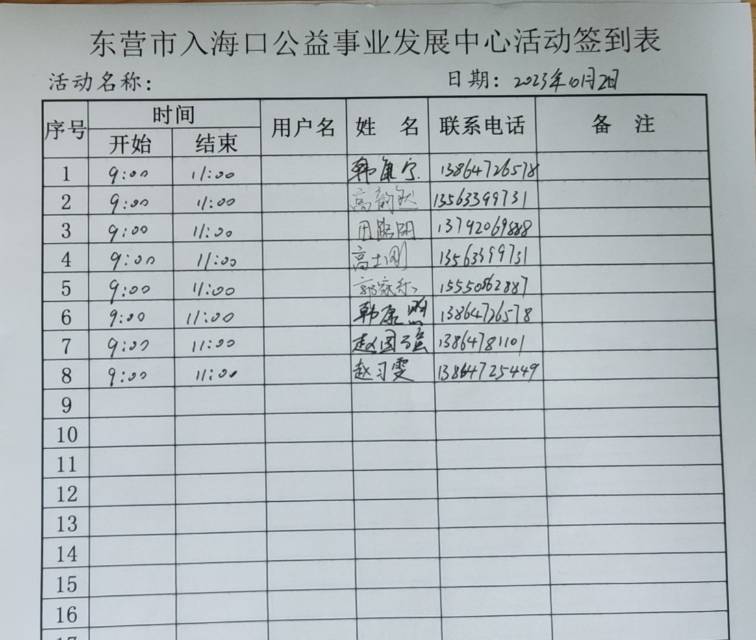 东营市入海口公益事业发展中心活动签到表
活动名称: 日期: 2023年10月2日
序号 时间 用户名 姓名 联系电话 备注
开始 结束
1 9:00 11:00 韩 13864726578
2 9:00 11:00 高 13563399731
3 9:00 11:00 13792069888
4 9:00 11:00 高士图 13563399731
5 9:00 11:00 郭 15550862887
6 9:00 11:00 韩康 13864726578
7 9:00 11:00 赵国强 13864781101
8 9:00 11:00 赵习雯 13864725449
9
10
11
12
13
14
15
16
17